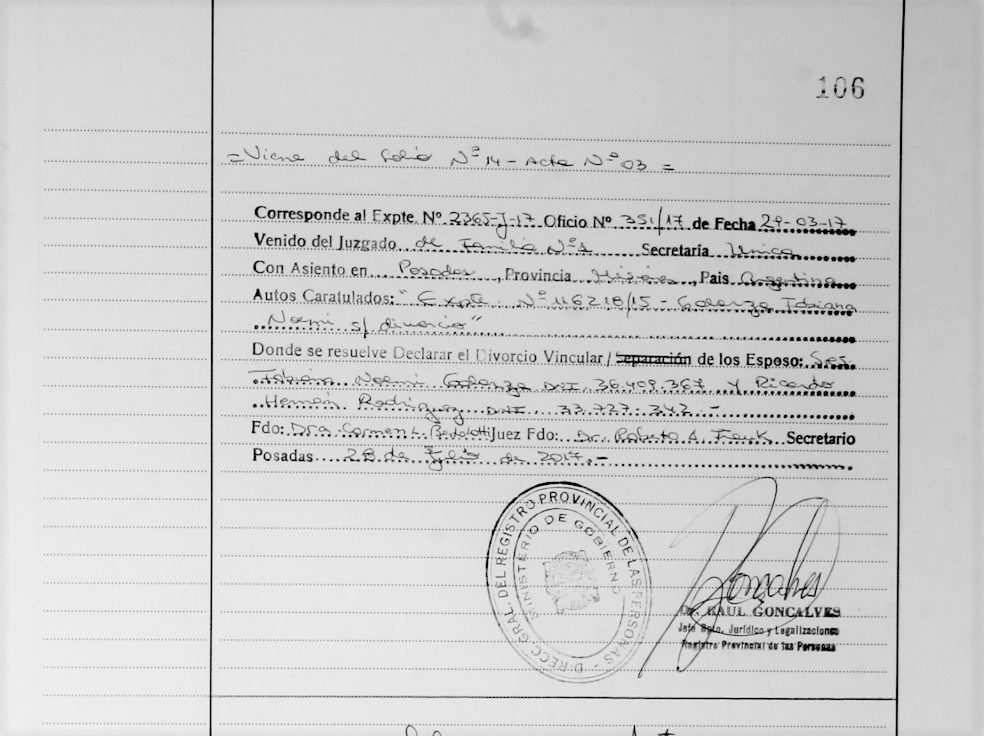 106
= Viene del folio Nº 14 - Acta Nº 03 =
Corresponde al Expte. Nº 2365-J-17 Oficio Nº 351/17 de Fecha 29-03-17
Venido del Juzgado de Familia Nº1 Secretaría Unica
Con Asiento en Posadas, Provincia Misiones, Pais Argentina
Autos Caratulados: "Expte. Nº 116218/15 - Galarza Fabiana
Noemi s/ divorcio"
Donde se resuelve Declarar el Divorcio Vincular / Separación de los Esposo: Sres.
Fabiana Noemi Galarza DNI. 36.409.367 y Ricardo
Hernán Rodriguez DNI. 33.727.342 -
Fdo: Dra. Carmen L. Juez Fdo: Dr. Roberto A. Secretario
Posadas 28 de Julio de 2017.-
DIRECC. GRAL. DEL REGISTRO PROVINCIAL DE LAS PERSONAS -
MINISTERIO DE GOBIERNO
Goncalves
Dr. RAUL GONCALVES
Jefe Dpto. Jurídico y Legalizaciones
Registro Provincial de las Personas